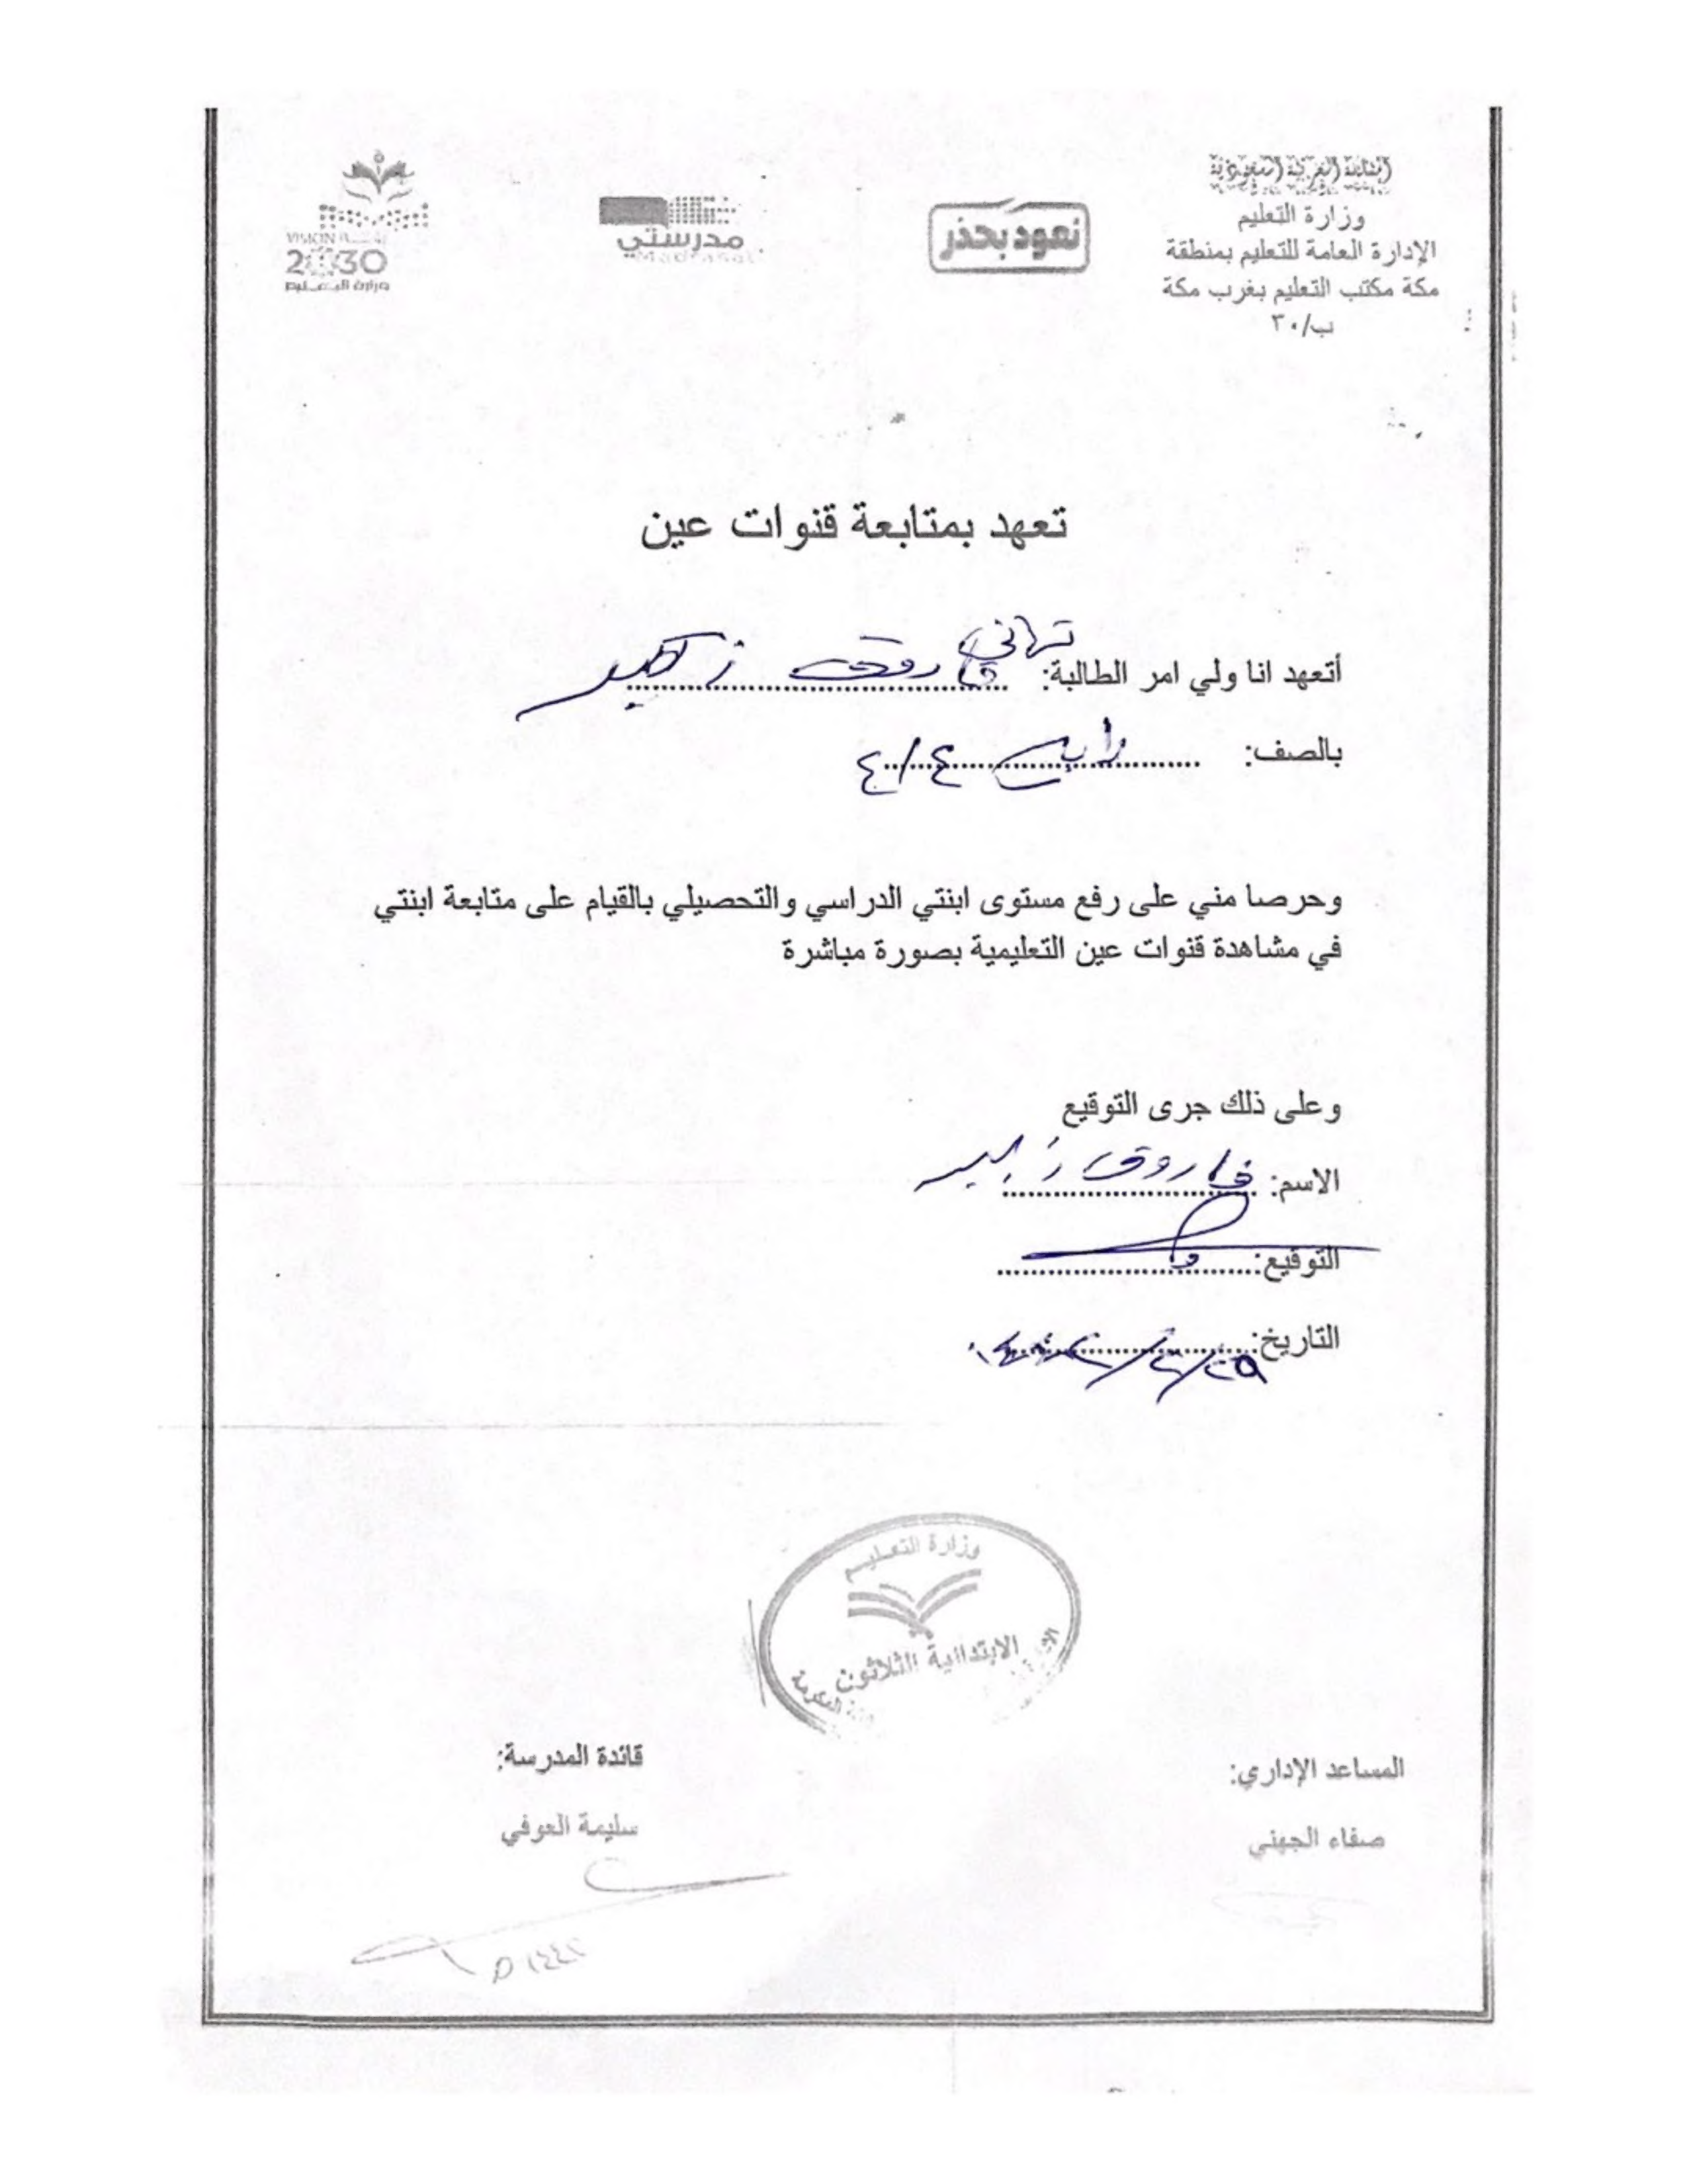 المملكة العربية السعودية
وزارة التعليم
الإدارة العامة للتعليم بمنطقة
مكة مكتب التعليم بغرب مكة
ب/٣٠
نعود بحذر
مدرستي
Madrasati
VISION رؤية
2030
وزارة التعليم
تعهد بمتابعة قنوات عين
أتعهد انا ولي امر الطالبة: تهاني فاروق
بالصف: رابع ٤/٤
وحرصا مني على رفع مستوى ابنتي الدراسي والتحصيلي بالقيام على متابعة ابنتي
في مشاهدة قنوات عين التعليمية بصورة مباشرة
وعلى ذلك جرى التوقيع
الاسم: فاروق
التوقيع:
التاريخ:
وزارة التعليم
الابتدائية الثلاثون
المساعد الإداري:
صفاء الجهني
قائدة المدرسة:
سليمة العوفي
١٤٤٢